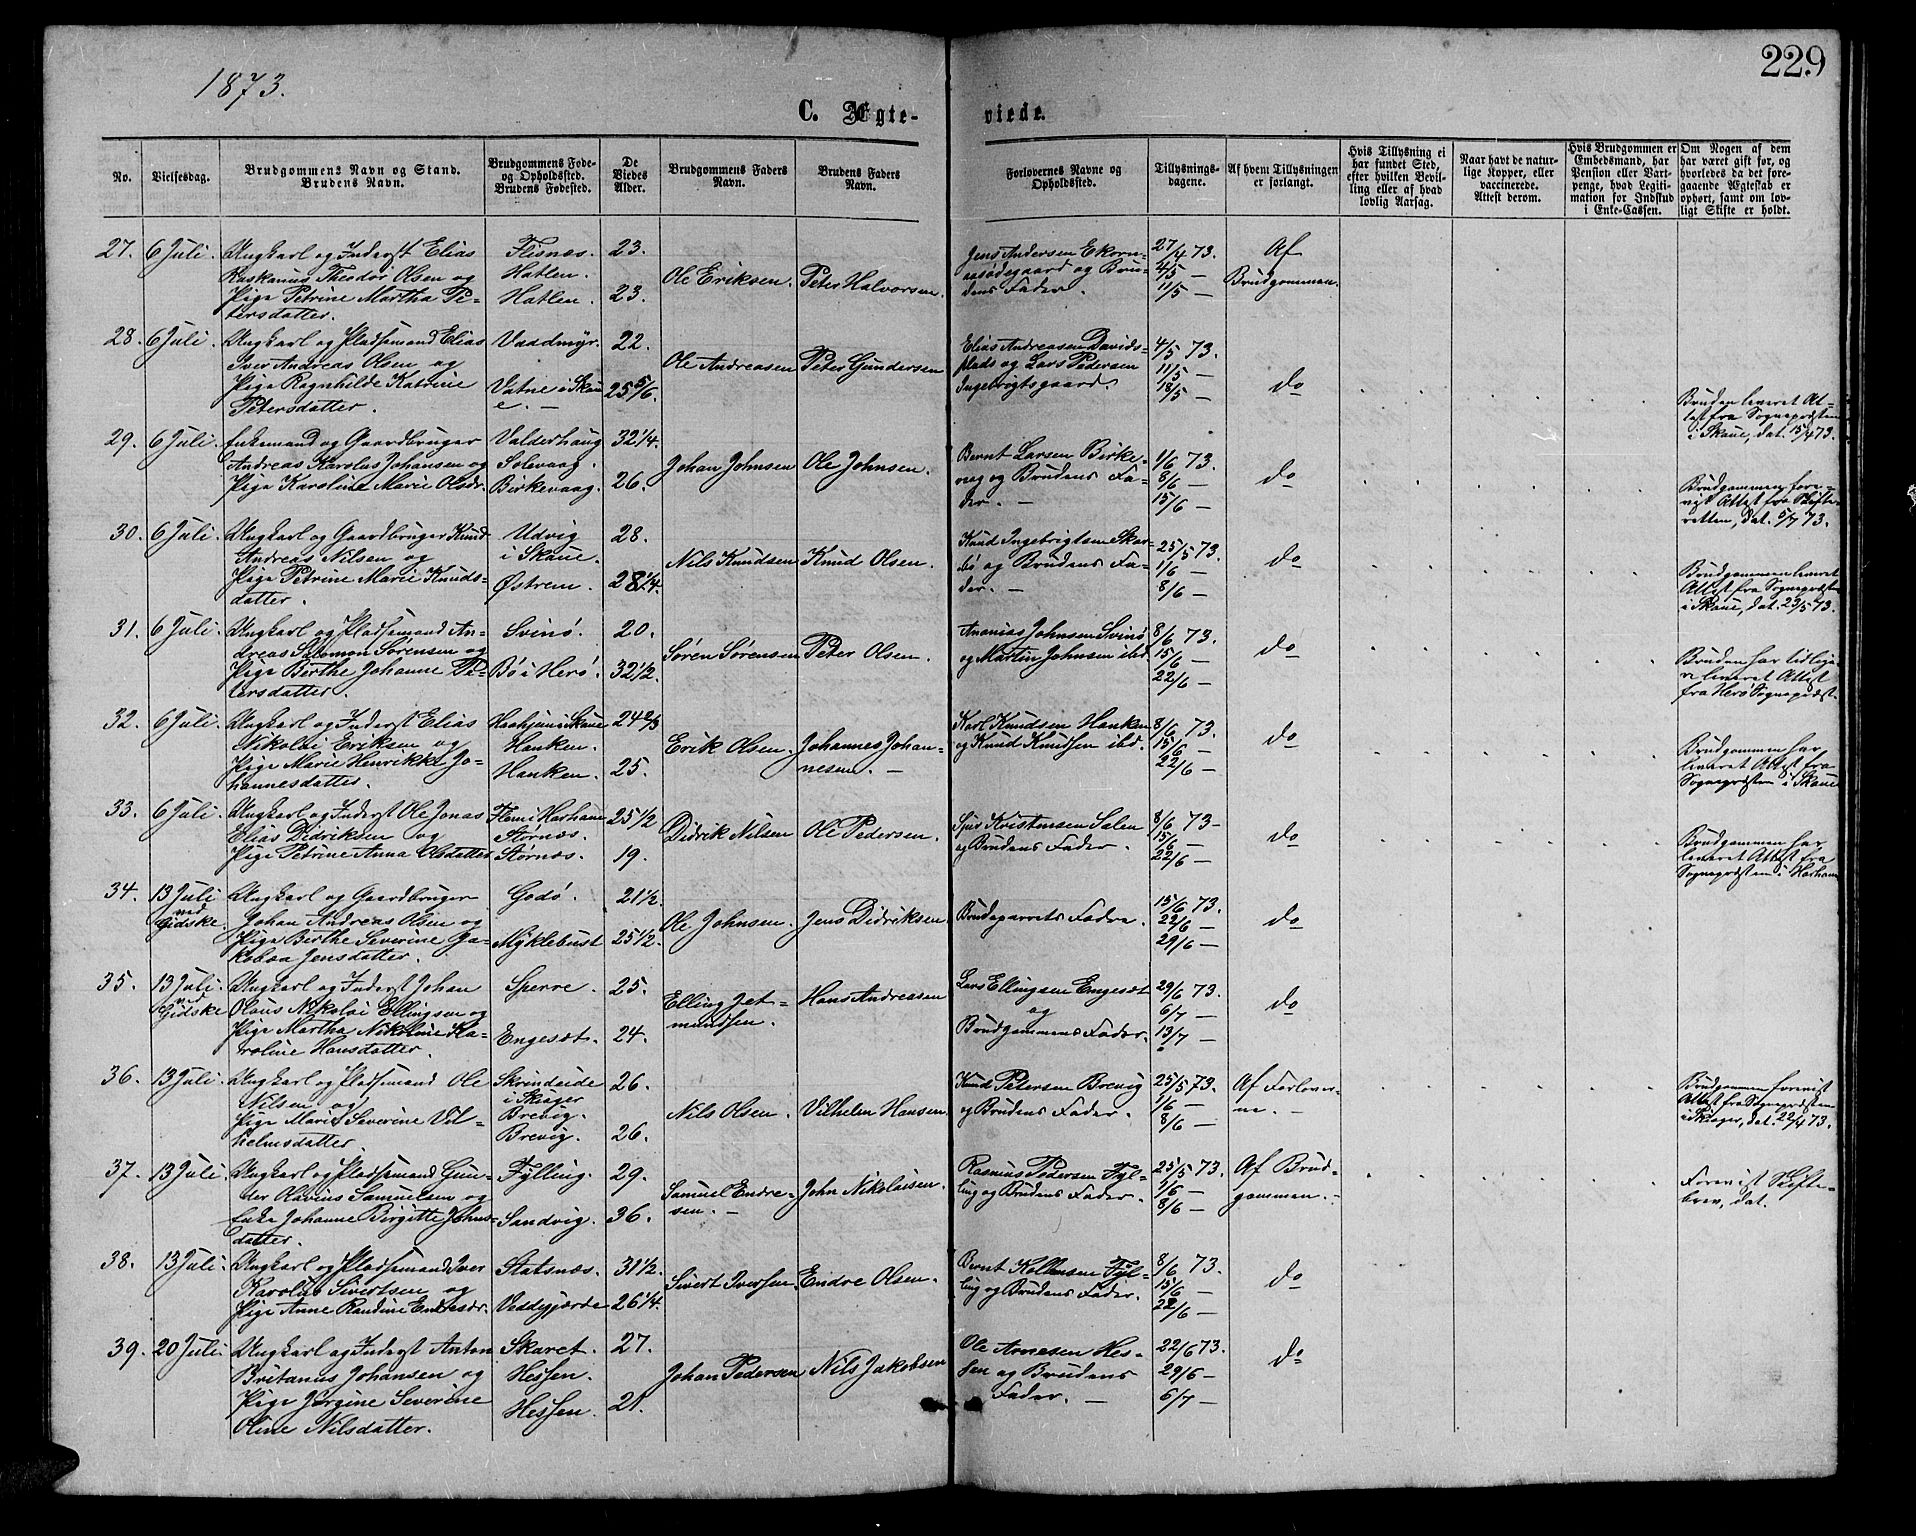 1873.
229
C. Ægte-
viede.
No.
Vielsesdag.
Brudgommens Navn og Stand.
Brudens Navn.
Brudgommens Føde-
og Opholdssted.
Brudens Fødested.
De
Viedes
Alder.
Brudgommens Faders
Navn.
Brudens Faders
Navn.
Forlovernes Navne og
Opholdssted.
Tillysnings-
dagene.
Af hvem Tillysningen
er forlangt.
Hvis Tillysning ei
har fundet Sted,
efter hvilken Bevil-
ling eller af hvad
lovlig Aarsag.
Naar havt de natur-
lige Kopper, eller
vaccinerede.
Attest derom.
Hvis Brudgommen er
Embedsmand, har
Pension eller Vart-
penge, hvad Legiti-
mation for Indskud
i Enke-Cassen.
Om Nogen af dem
har været gift før, og
hvorledes da det fore-
gaaende Ægteskab er
ophørt, samt om lov-
ligt Skifte er holdt.
27. 6 Juli. Ungkarl og Inderst Elias
Theodor Olsen og
Pige Petrine Martha Pe-
tersdatter.
Flisnes.
Hatlen.
Hatlen.
23.
23.
Ole Eriksen.
Peter Halvorsen.
Jens Andersen Ekorn-
næsødegaard og Bru-
dens Fader.
27/4 73.
4/5 —
11/5 —
Af
Brudgommen.
28. 6 Juli. Ungkarl og Pladsemand Elias
Iver Andreas Olsen og
Pige Ragnhilde Katrine
Petersdatter.
Vaddmyr.
Vatne i Skau
e. —
22.
25 5/6.
Ole Andreasen
Peter Gundersen
Elias Andreasen Davids-
plads og Lars Pedersen
Ingebrigtsgaard.
4/5 73.
11/5 —
18/5 —
do
Bruden leveret At-
test fra Sognepræsten
i Skaue, dat. 15/4 73.
29. 6 Juli. Enkemand og Gaardbruger
Andreas Karolus Johansen og
Pige Karoline Marie Olsdr.
Valderhaug
Solevaag.
Birkevaag.
32 1/4.
26.
Johan Johnsen
Ole Johnsen.
Bernt Larsen Birke-
vag og Brudens Fa-
der. —
1/6 73.
8/6 —
15/6 —
do
Brudgommen fore-
vist Attest fra Skifte-
retten, dat. 5/7 73.
30. 6 Juli. Ungkarl og Gaardbruger Knud
Andreas Nilsen og
Pige Petrine Marie Knuds-
datter.
Udvig
i Skaue.
Østrem.
28.
28 1/4.
Nils Knudsen
Knud Olsen.
Knud Ingebrigtsen Skar-
bø og Brudens Fa-
der. —
25/5 73.
1/6 —
8/6 —
do
Brudgommen leveret
Attest fra Sognepræsten
i Skaue, dat. 23/5 73.
31. 6 Juli. Ungkarl og Pladsemand An-
dreas Salomon Sørensen og
Pige Berthe Johanne Pe-
tersdatter.
Svinø.
Bø i Herø.
20.
32 1/2.
Søren Sørensen
Peter Olsen.
Ananias Johnsen Svinø
og Martin Johnsen ibd.
8/6 73.
15/6 —
22/6 —
do
Bruden har tidlige-
re leveret Attest
fra Herø Sognepræst.
32. 6 Juli. Ungkarl og Inderst Elias
Nikolai Eriksen og
Pige Marie Henrikke Jo-
hannesdatter.
i Skaue
Hanken.
Hanken.
24 2/3
25.
Erik Olsen.
Johannes Johan-
nesen. —
Karl Knudsen Hanken
og Knud Knudsen ibd.
8/6 73.
15/6 —
22/6 —
do
Brudgommen har
leveret Attest fra
Sognepræsten i Skaue
33. 6 Juli. Ungkarl og Inderst Ole Jonas
Elias Didriksen og
Pige Petrine Anna Olsdatter
Flem i Harham
Størnes.
Størnes.
25 1/2
19.
Didrik Nilsen
Ole Pedersen.
Sjur Kristensen Salen
og Brudens Fader.
8/6 73 —
15/6 —
22/6 —
do
Brudgommen har
leveret Attest fra
Sognepræsten i Harham
34. 13 Juli
ved
Gidske.
Ungkarl og Gaardbruger
Johan Andreas Olsen og
Pige Berthe Severine Ja-
kobea Jensdatter.
Godø.
Myklebust
21 1/2.
25 1/2.
Ole Johnsen.
Jens Didriksen
Brudeparrets Fædre.
15/6 73.
22/6 —
29/6 —
do
35. 13 Juli.
ved
Gidske
Ungkarl og Inderst Johan
Olaus Nikolai Ellingsen og
Pige Martha Nikoline Ka-
roline Hansdatter.
Sperre.
Engesæt.
25.
24.
Elling Jet-
mundsen.
Hans Andreasen
Lars Ellingsen Engesæt
og
Brudgommens Fader.
29/6 73.
6/7 —
13/7 —
do
36. 13 Juli. Ungkarl og Pladsemand Ole
Nilsen og
Pige Marie Severine Vil-
helmsdatter.
Skrindeide
i Skager
Brevig.
Brevig.
26.
26.
Nils Olsen.
Vilhelm Hansen.
Knud Petersen Brevig
og Brudens Fader.
25/5 73.
1/6 —
8/6 —
Af Forlover-
ne. —
Brudgommen forevist
Attest fra Sognepræsten
i Skager, dat. 22/4 73.
37. 13 Juli. Ungkarl og Pladsemand Gun-
der Olavius Samuelsen og
Enke Johanne Birgitte Johns-
datter.
Fylling.
Sandvig.
29.
36.
Samuel Endre-
sen. —
John Nikolaisen.
Rasmus Pedersen Fyl-
ling og Brudens Fader.
25/5 73.
1/6 —
8/6 —
Af Brud-
gommen. —
Forevist Skifte-
brev, dat.
38. 13 Juli. Ungkarl og Pladsemand Iver
Karolus Sivertsen og
Pige Anne Randine Endresdr.
Statsnæs.
Veddegjærde
31 1/2.
26 1/4.
Sivert Iversen
Endre Olsen.
Bernt Kolbensen Fyl-
ling og Brudens Fader.
8/6 73.
15/6 —
22/6 —
do
39. 20 Juli. Ungkarl og Inderst Anton
Britanus Johansen og
Pige Jørgine Severine
Oline Nilsdatter.
Skaret.
Hessen.
Hessen.
27.
21.
Johan Pedersen
Nils Jakobsen
Ole Arnesen Hes-
sen og Brudens
Fader. —
22/6 73.
29/6 —
6/7 —
do